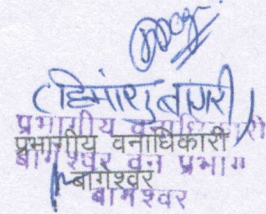 (हिमांशु बागरी)
प्रभागीय वनाधिकारी
प्रभागीय वनाधिकारी
बागेश्वर वन प्रभाग
बागेश्वर
बागेश्वर